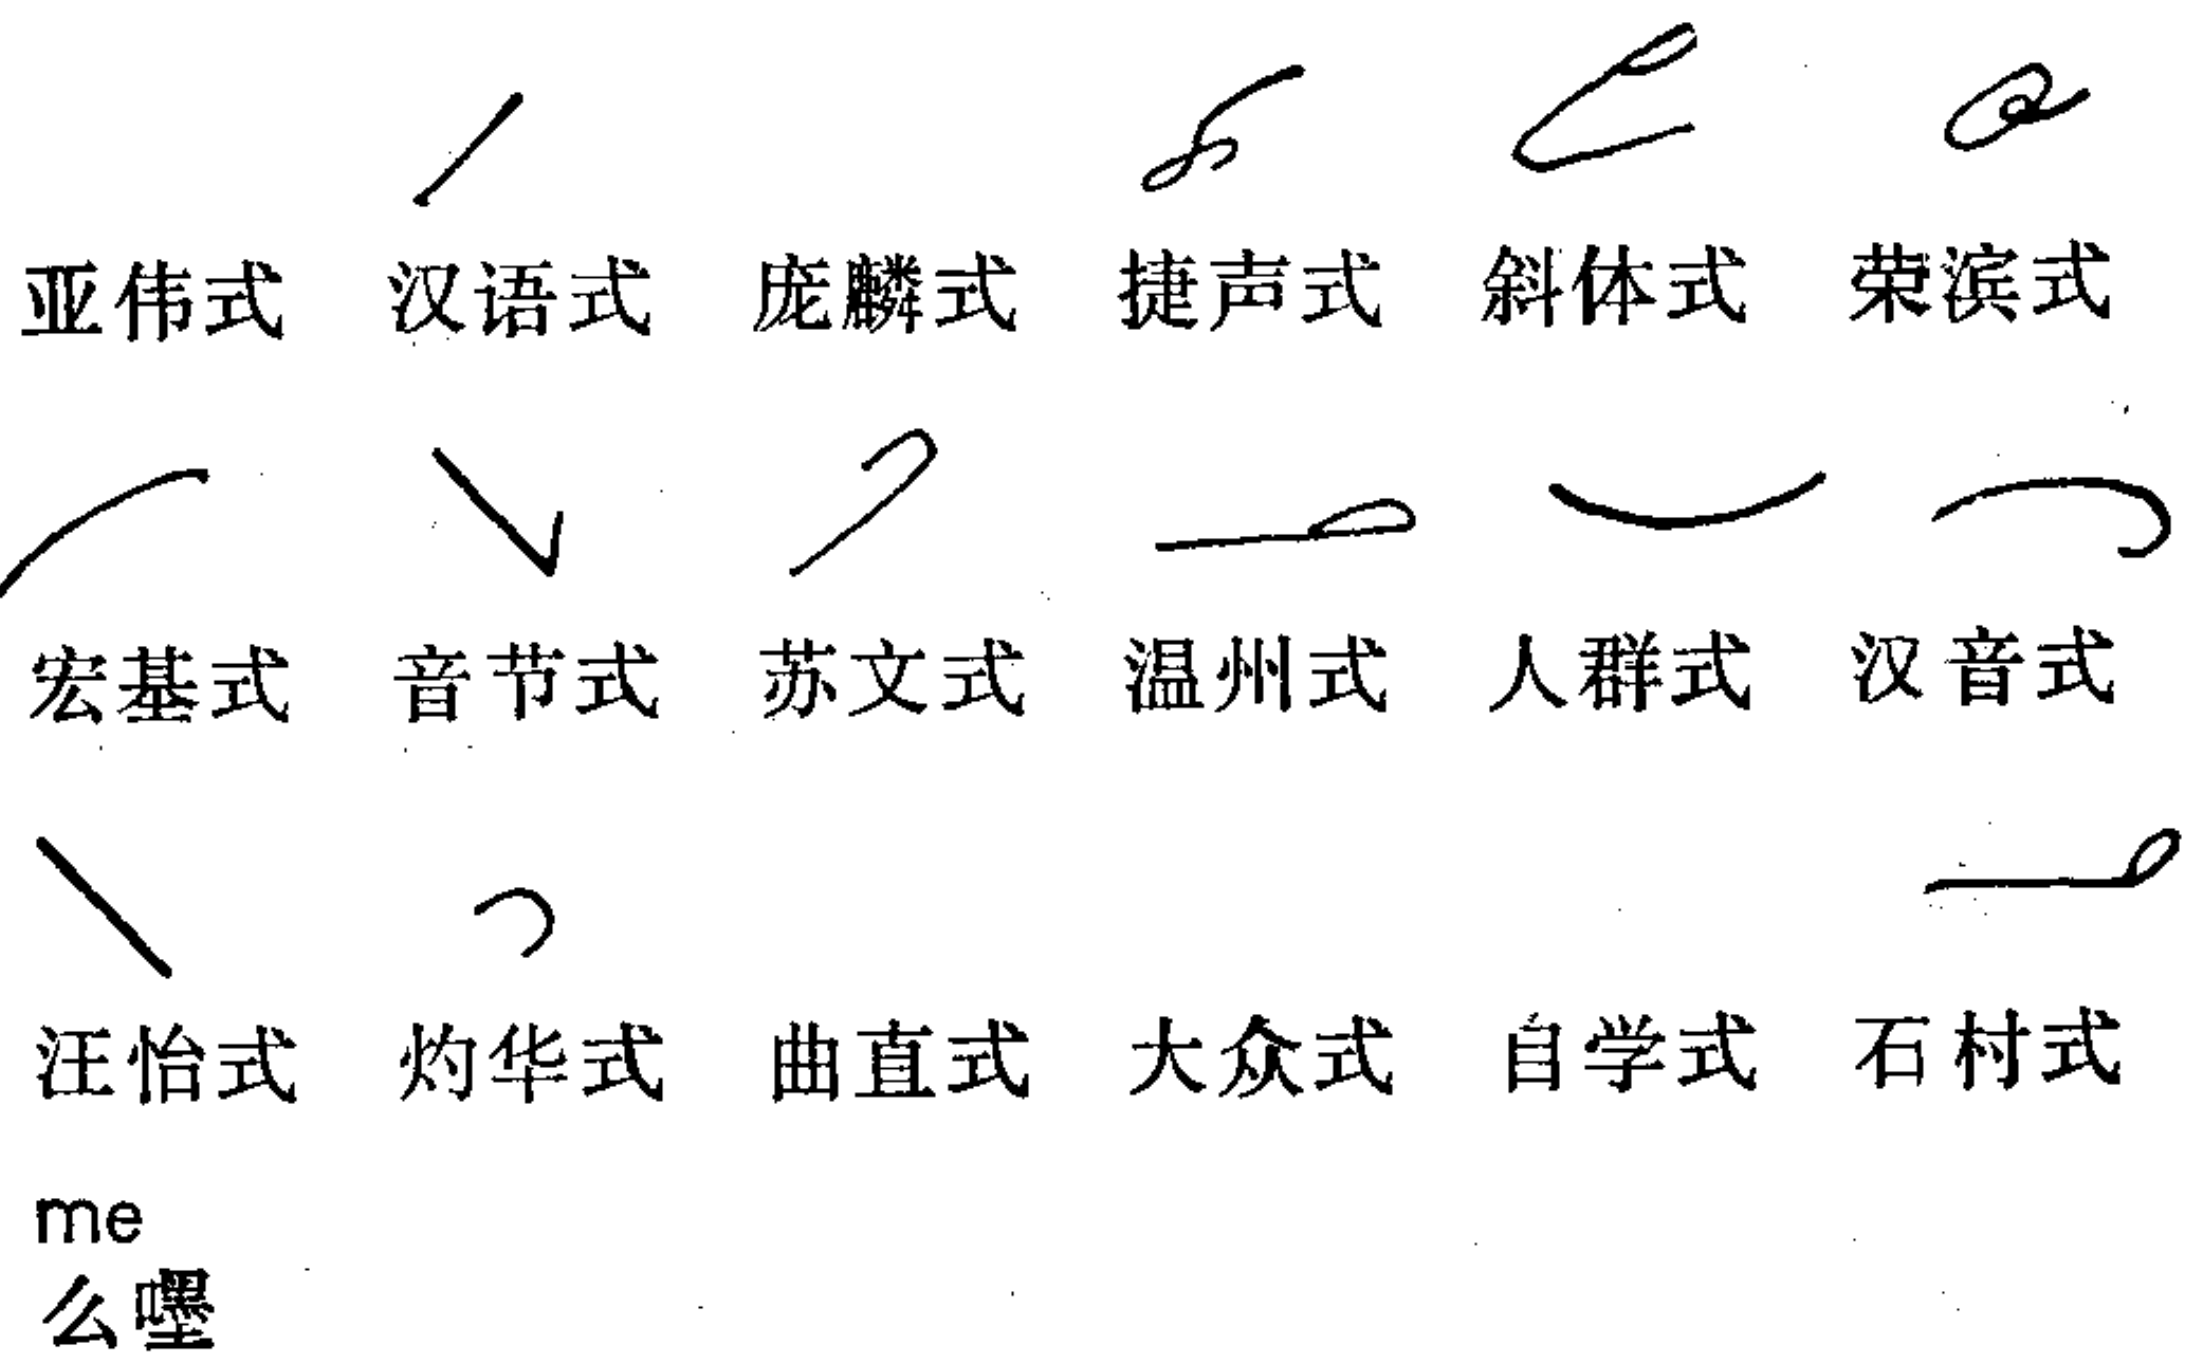 亚伟式 汉语式 庞麟式 捷声式 斜体式 荣滨式
宏基式 音节式 苏文式 温州式 人群式 汉音式
汪怡式 灼华式 曲直式 大众式 自学式 石村式
me
么嚜